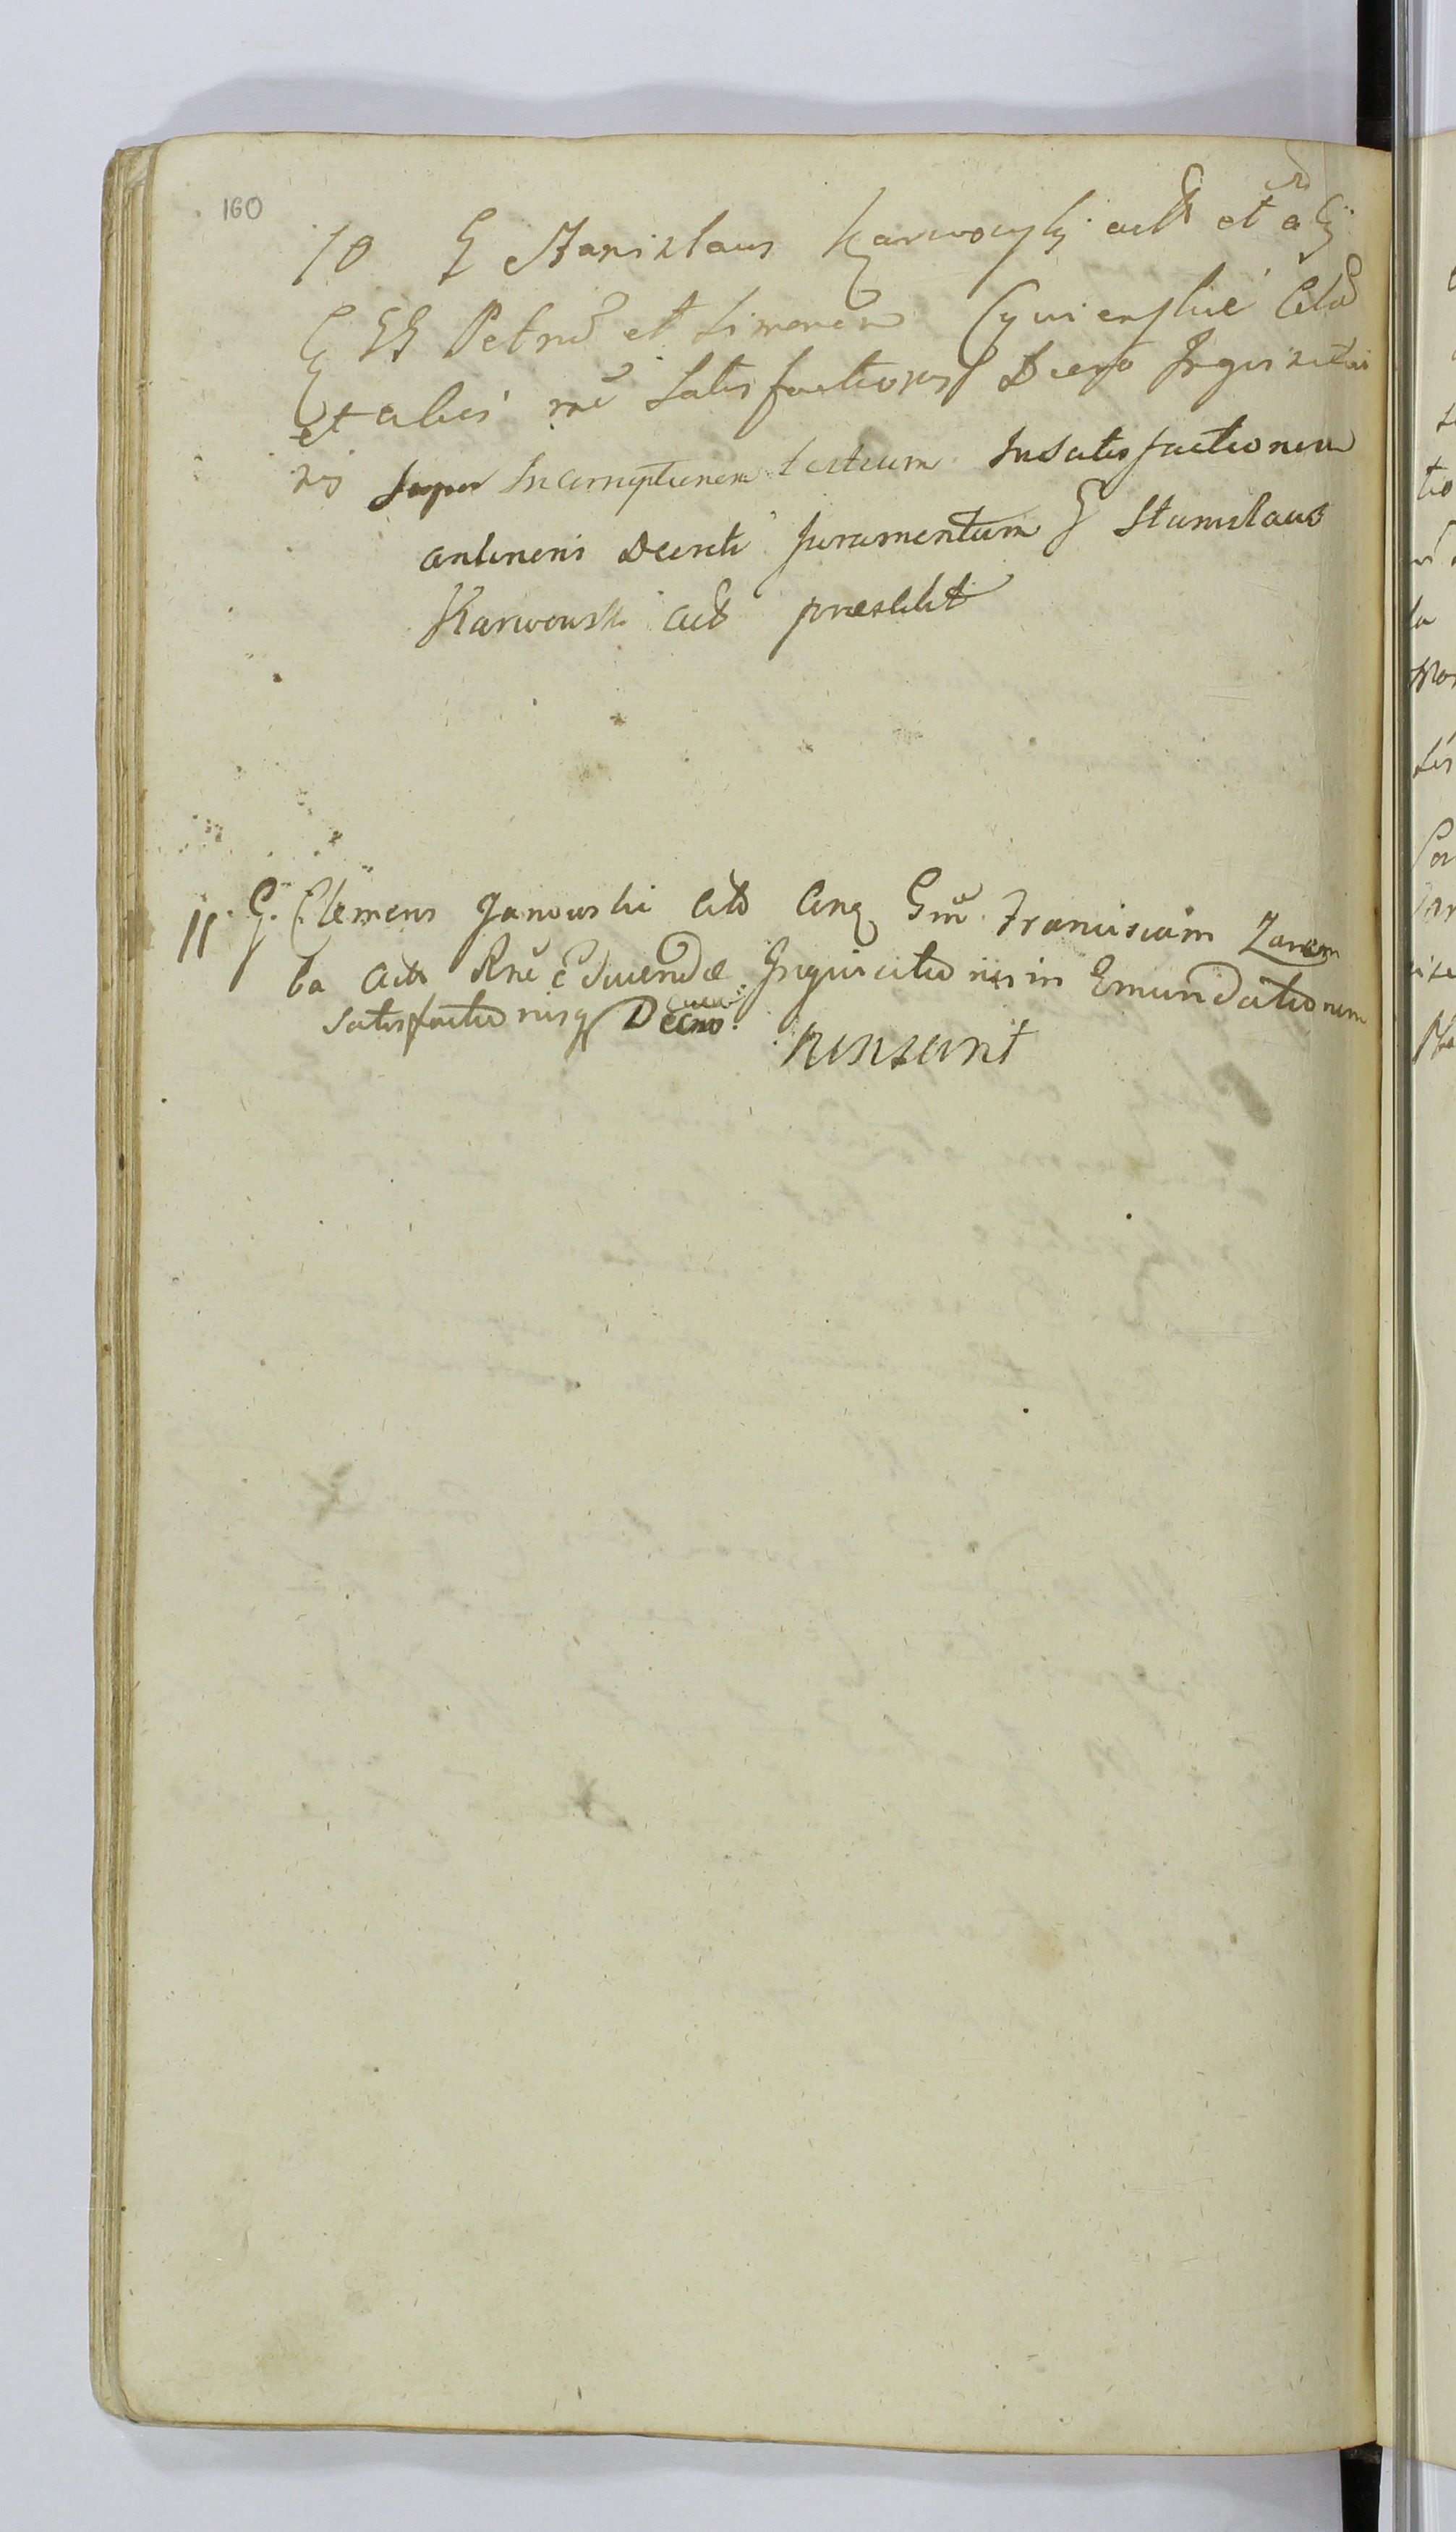 160
10 G Stanislaus Karwowsky act et alij
GG Petrū et Simonem Cywienskie Citō
et alios rnē Satisfactionis Decrō Inquisitio
nis super Incorruptionem testium In Satisfactionem
anterioris Decreti Juramentum G Stanislaus
Karwowski act praestitit
11 G. Clemens Janowski Citō Cinq Gnē Franciscum Zarem
ba Act Rnē Educendæ Inquisitionis in Emundationem
satisfactionisq Decrō.